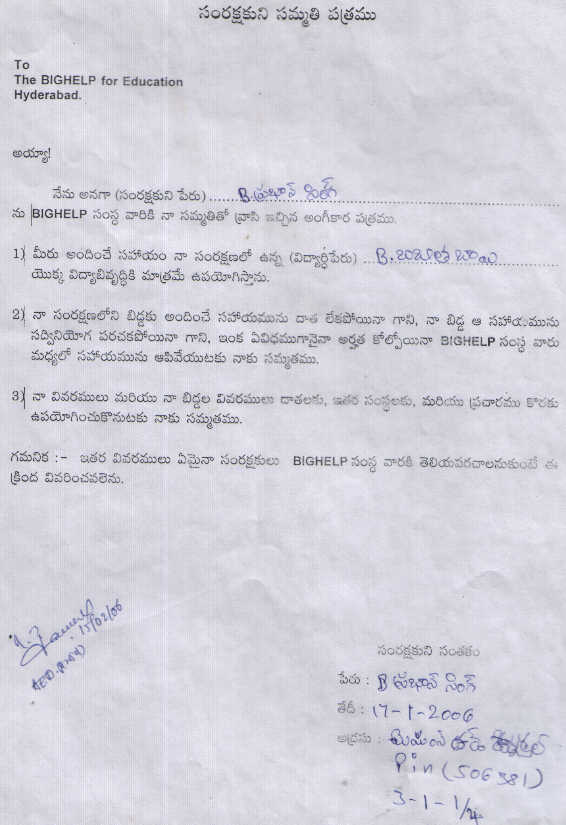 సంరక్షకుని సమ్మతి పత్రము
To
The BIGHELP for Education
Hyderabad.
అయ్యా!
నేను అనగా (సంరక్షకుని పేరు) ........ B. సింగ్ ........
ను BIGHELP సంస్థ వారికి నా సమ్మతితో వ్రాసి ఇచ్చిన అంగీకార పత్రము.
1) మీరు అందించే సహాయం నా సంరక్షణలో ఉన్న (విద్యార్థిపేరు) .... B. బాయి
యొక్క విద్యాభివృద్ధికి మాత్రమే ఉపయోగిస్తాను.
2) నా సంరక్షణలోని బిడ్డకు అందించే సహాయమును దాత లేకపోయినా గాని, నా బిడ్డ ఆ సహాయమును
సద్వినియోగ పరచకపోయినా గాని, ఇంక ఏవిధముగానైనా అర్హత కోల్పోయినా BIGHELP సంస్థ వారు
మధ్యలో సహాయమును ఆపివేయుటకు నాకు సమ్మతము.
3) నా వివరములు మరియు నా బిడ్డల వివరములు దాతలకు, ఇతర సంస్థలకు, మరియు ప్రచారము కొరకు
ఉపయోగించుకొనుటకు నాకు సమ్మతము.
గమనిక :- ఇతర వివరములు ఏమైనా సంరక్షకులు BIGHELP సంస్థ వారకి తెలియపరచాలనుకుంటే ఈ
క్రింద వివరించవలెను.
సంరక్షకుని సంతకం
పేరు : B సింగ్
తేదీ : 17-1-2006
అడ్రసు :
Pin (506381)
3-1-1/4